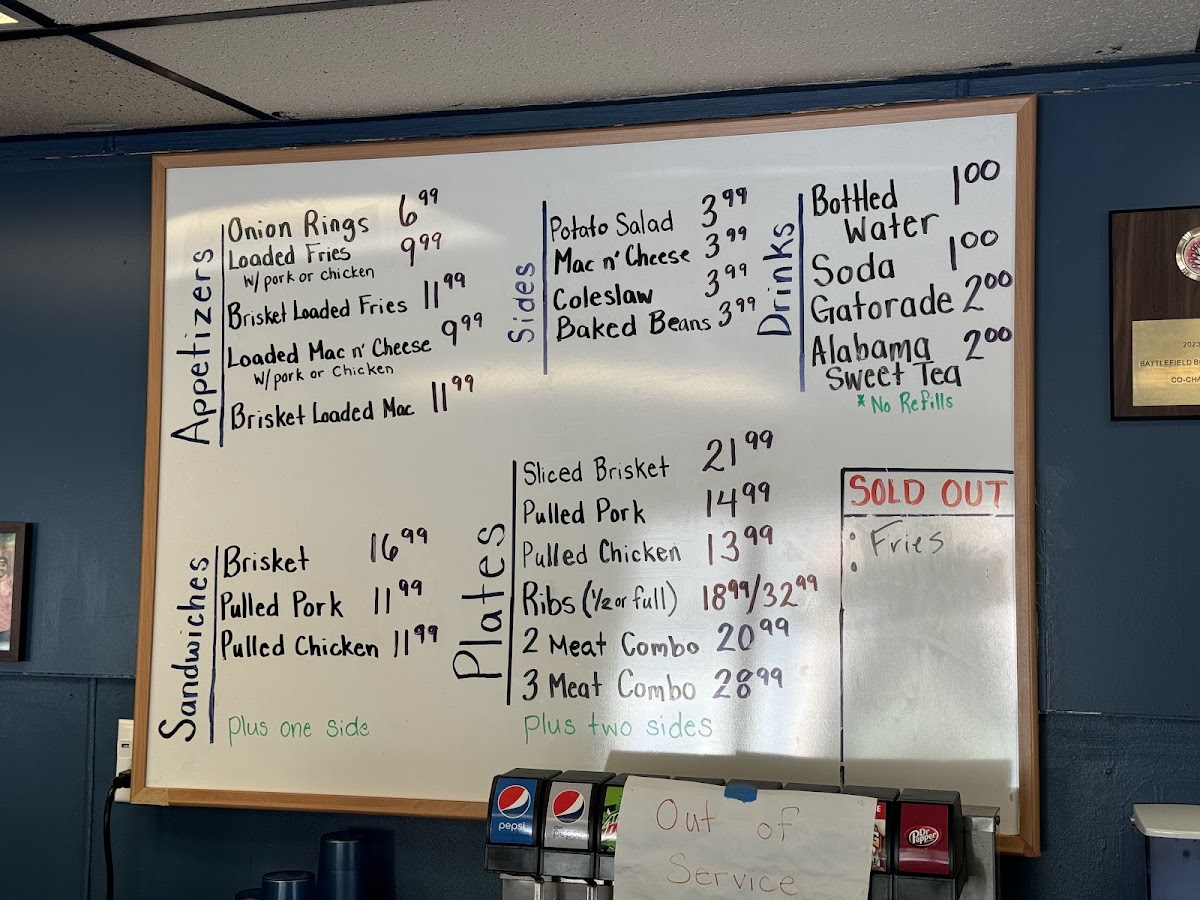 Appetizers
Onion Rings 6.99
Loaded Fries 9.99
W/ pork or chicken
Brisket Loaded Fries 11.99
Loaded Mac n' Cheese 9.99
W/ pork or Chicken
Brisket Loaded Mac 11.99
Sides
Potato Salad 3.99
Mac n' Cheese 3.99
Coleslaw 3.99
Baked Beans 3.99
Drinks
Bottled 1.00
Water
Soda 1.00
Gatorade 2.00
Alabama 2.00
Sweet Tea
* No Refills
Sandwiches
Brisket 16.99
Pulled Pork 11.99
Pulled Chicken 11.99
Plus one side
Plates
Sliced Brisket 21.99
Pulled Pork 14.99
Pulled Chicken 13.99
Ribs (1/2 or full) 18.99/32.99
2 Meat Combo 20.99
3 Meat Combo 28.99
plus two sides
SOLD OUT
• Fries
•
2023
BATTLEFIELD
CO-CHA
pepsi
Out of
Service
Dr Pepper